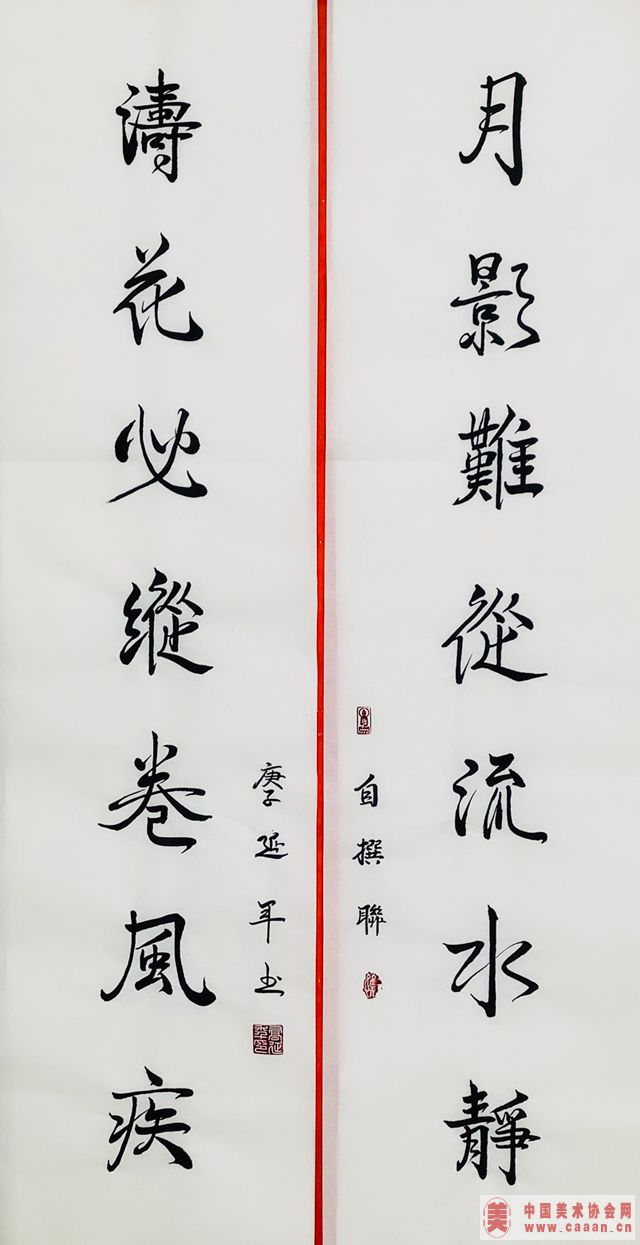 月影難從流水靜
自撰聯
濤花必縱卷風疾
庚子延年书
中国美术协会网
www.caaan.cn